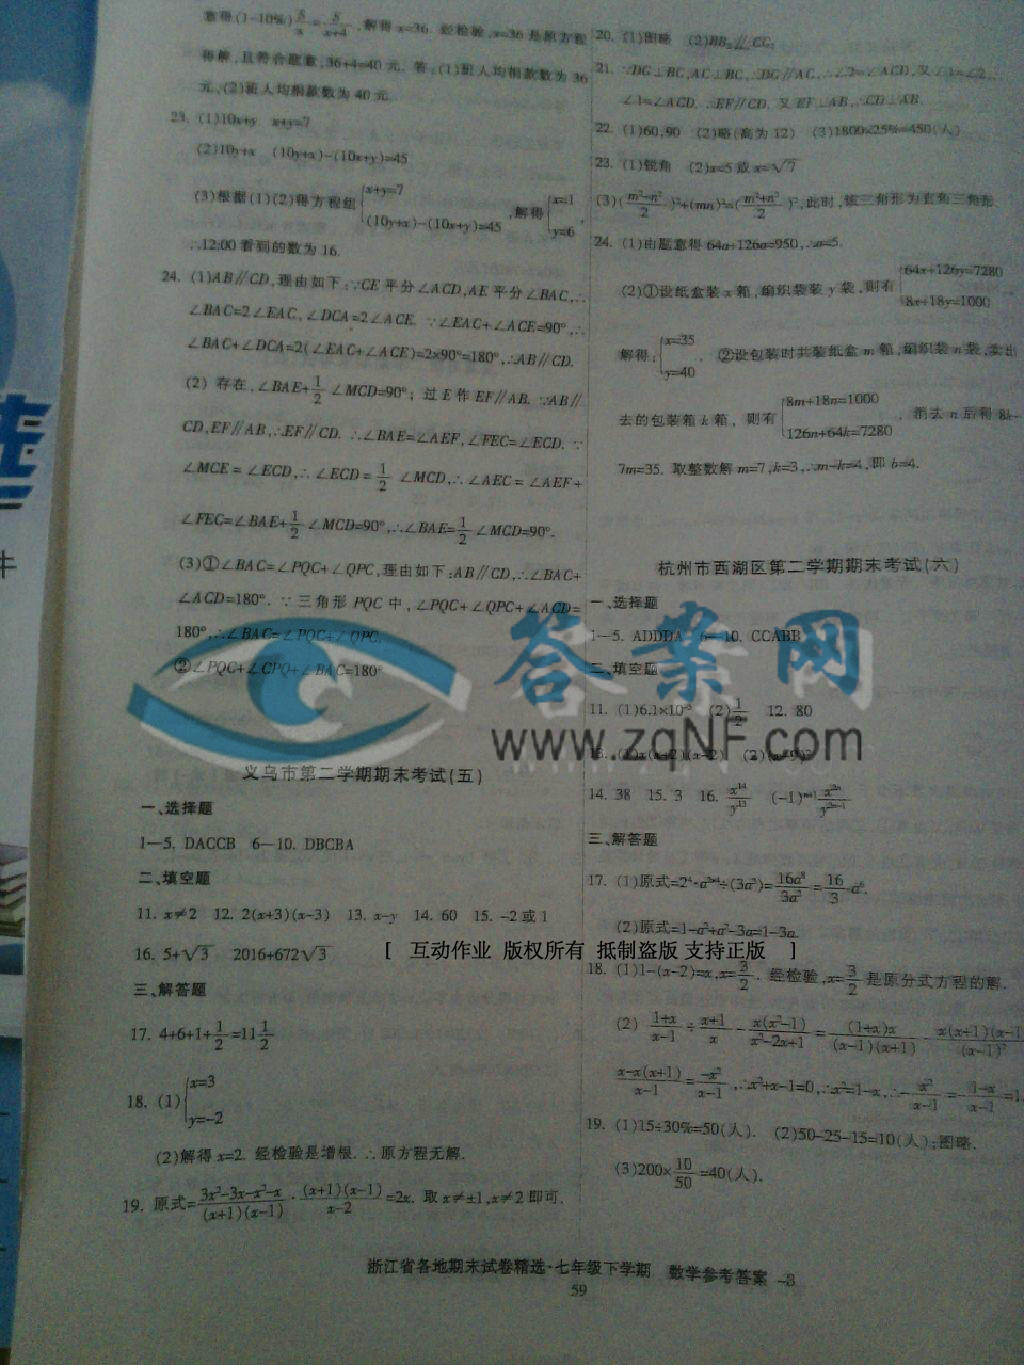 意得(1-10%)5/x=5/(x+4),解得x=36. 经检验,x=36是原方程
得解,且符合题意,36+4=40元. 答:(1)班人均捐款数为36
元,(2)班人均捐款数为40元.
23. (1)10x+y x+y=7
(2)10y+x (10y+x)-(10x+y)=45
(3)根据(1)(2)得方程组{x+y=7 (10y+x)-(10x+y)=45 ,解得{x=1 y=6 ,
∴12:00看到的数为16.
24. (1)AB∥CD,理由如下:∵CE平分∠ACD,AE平分∠BAC,∴
∠BAC=2∠EAC,∠DCA=2∠ACE. ∵∠EAC+∠ACE=90°,∴
∠BAC+∠DCA=2(∠EAC+∠ACE)=2×90°=180°,∴AB∥CD.
(2) 存在,∠BAE+1/2∠MCD=90°; 过E作EF∥AB. ∵AB∥
CD,EF∥AB,∴EF∥CD. ∴∠BAE=∠AEF,∠FEC=∠ECD. ∵
∠MCE=∠ECD,∴∠ECD=1/2∠MCD,∴∠AEC=∠AEF+
∠FEC=∠BAE+1/2∠MCD=90°,∴∠BAE=1/2∠MCD=90°.
(3)①∠BAC=∠PQC+∠QPC,理由如下:AB∥CD,∴∠BAC+
∠ACD=180°. ∵三角形PQC中,∠PQC+∠QPC+∠ACD=
180°,∴∠BAC=∠PQC+∠QPC.
②∠PQC+∠CPQ+∠BAC=180°
义乌市第二学期期末考试(五)
一、选择题
1—5. DACCB 6—10. DBCBA
二、填空题
11. x≠2 12. 2(x+3)(x-3) 13. x-y 14. 60 15. -2或1
16. 5+√3 2016+672√3
三、解答题
17. 4+6+1+1/2=11 1/2
18. (1){x=3 y=-2
(2)解得x=2. 经检验是增根. ∴原方程无解.
19. 原式=(3x²-3x-x²-x)/((x+1)(x-1))·((x+1)(x-1))/(x-2)=2x. 取x≠±1,x≠2即可.
20. (1)图略 (2)BB₁∥CC₁
21. ∵DG⊥BC,AC⊥BC,∴DG∥AC,∴∠2=∠ACD,又∠1=∠2,
∠1=∠ACD. ∴EF∥CD. 又EF⊥AB,∴CD⊥AB.
22. (1)60,90 (2)略(高为12) (3)1800×25%=450(人)
23. (1)锐角 (2)x=5或x=√7
(3)((m²-n²)/2)²+(mn)²=((m²+n²)/2)²,此时,该三角形为直角三角形.
24. (1)由题意得64a+126a=950,∴a=5.
(2)①设纸盒装x箱,编织袋装y袋,则有{64x+126y=7280 8x+18y=1000
解得:{x=35 y=40 . ②设包装时共装纸盒m箱,编织袋n袋,卖出
去的包装箱k箱, 则有{8m+18n=1000 126n+64k=7280 , 消去n后得8k-
7m=35. 取整数解m=7,k=3,∴m-k=4,即b=4.
杭州市西湖区第二学期期末考试(六)
一、选择题
1—5. ADDDA 6—10. CCABB
二、填空题
11. (1)6.1×10⁻⁵ (2)1/2 12. 80
13. (1)x(x+2)(x-2) (2)(x-9)²
14. 38 15. 3 16. x¹⁴/y¹³
三、解答题
17. (1)原式=2⁴·a²ˣ⁴÷(3a²)=16a⁸/3a²=16/3 a⁶.
(2)原式=1-a²+a²-3a=1-3a.
18. (1)1-(x-2)=x,x=3/2. 经检验,x=3/2是原分式方程的解.
(2) (1+x)/(x-1)÷(x+1)/x-x(x²-1)/(x²-2x+1)=(1+x)x/((x-1)(x+1))-x(x+1)(x-1)/(x-1)²
x-x(x+1)/(x-1)=-x²/(x-1),∴x²+x-1=0,∴x²=1-x,∴-x²/(x-1)=-(1-x)/(x-1)=1.
19. (1)15÷30%=50(人). (2)50-25-15=10(人);图略.
(3)200×10/50=40(人).
答案网
www.zqNF.com
[ 互动作业 版权所有 抵制盗版 支持正版 ]
浙江省各地期末试卷精选·七年级下学期 数学参考答案 -3
59